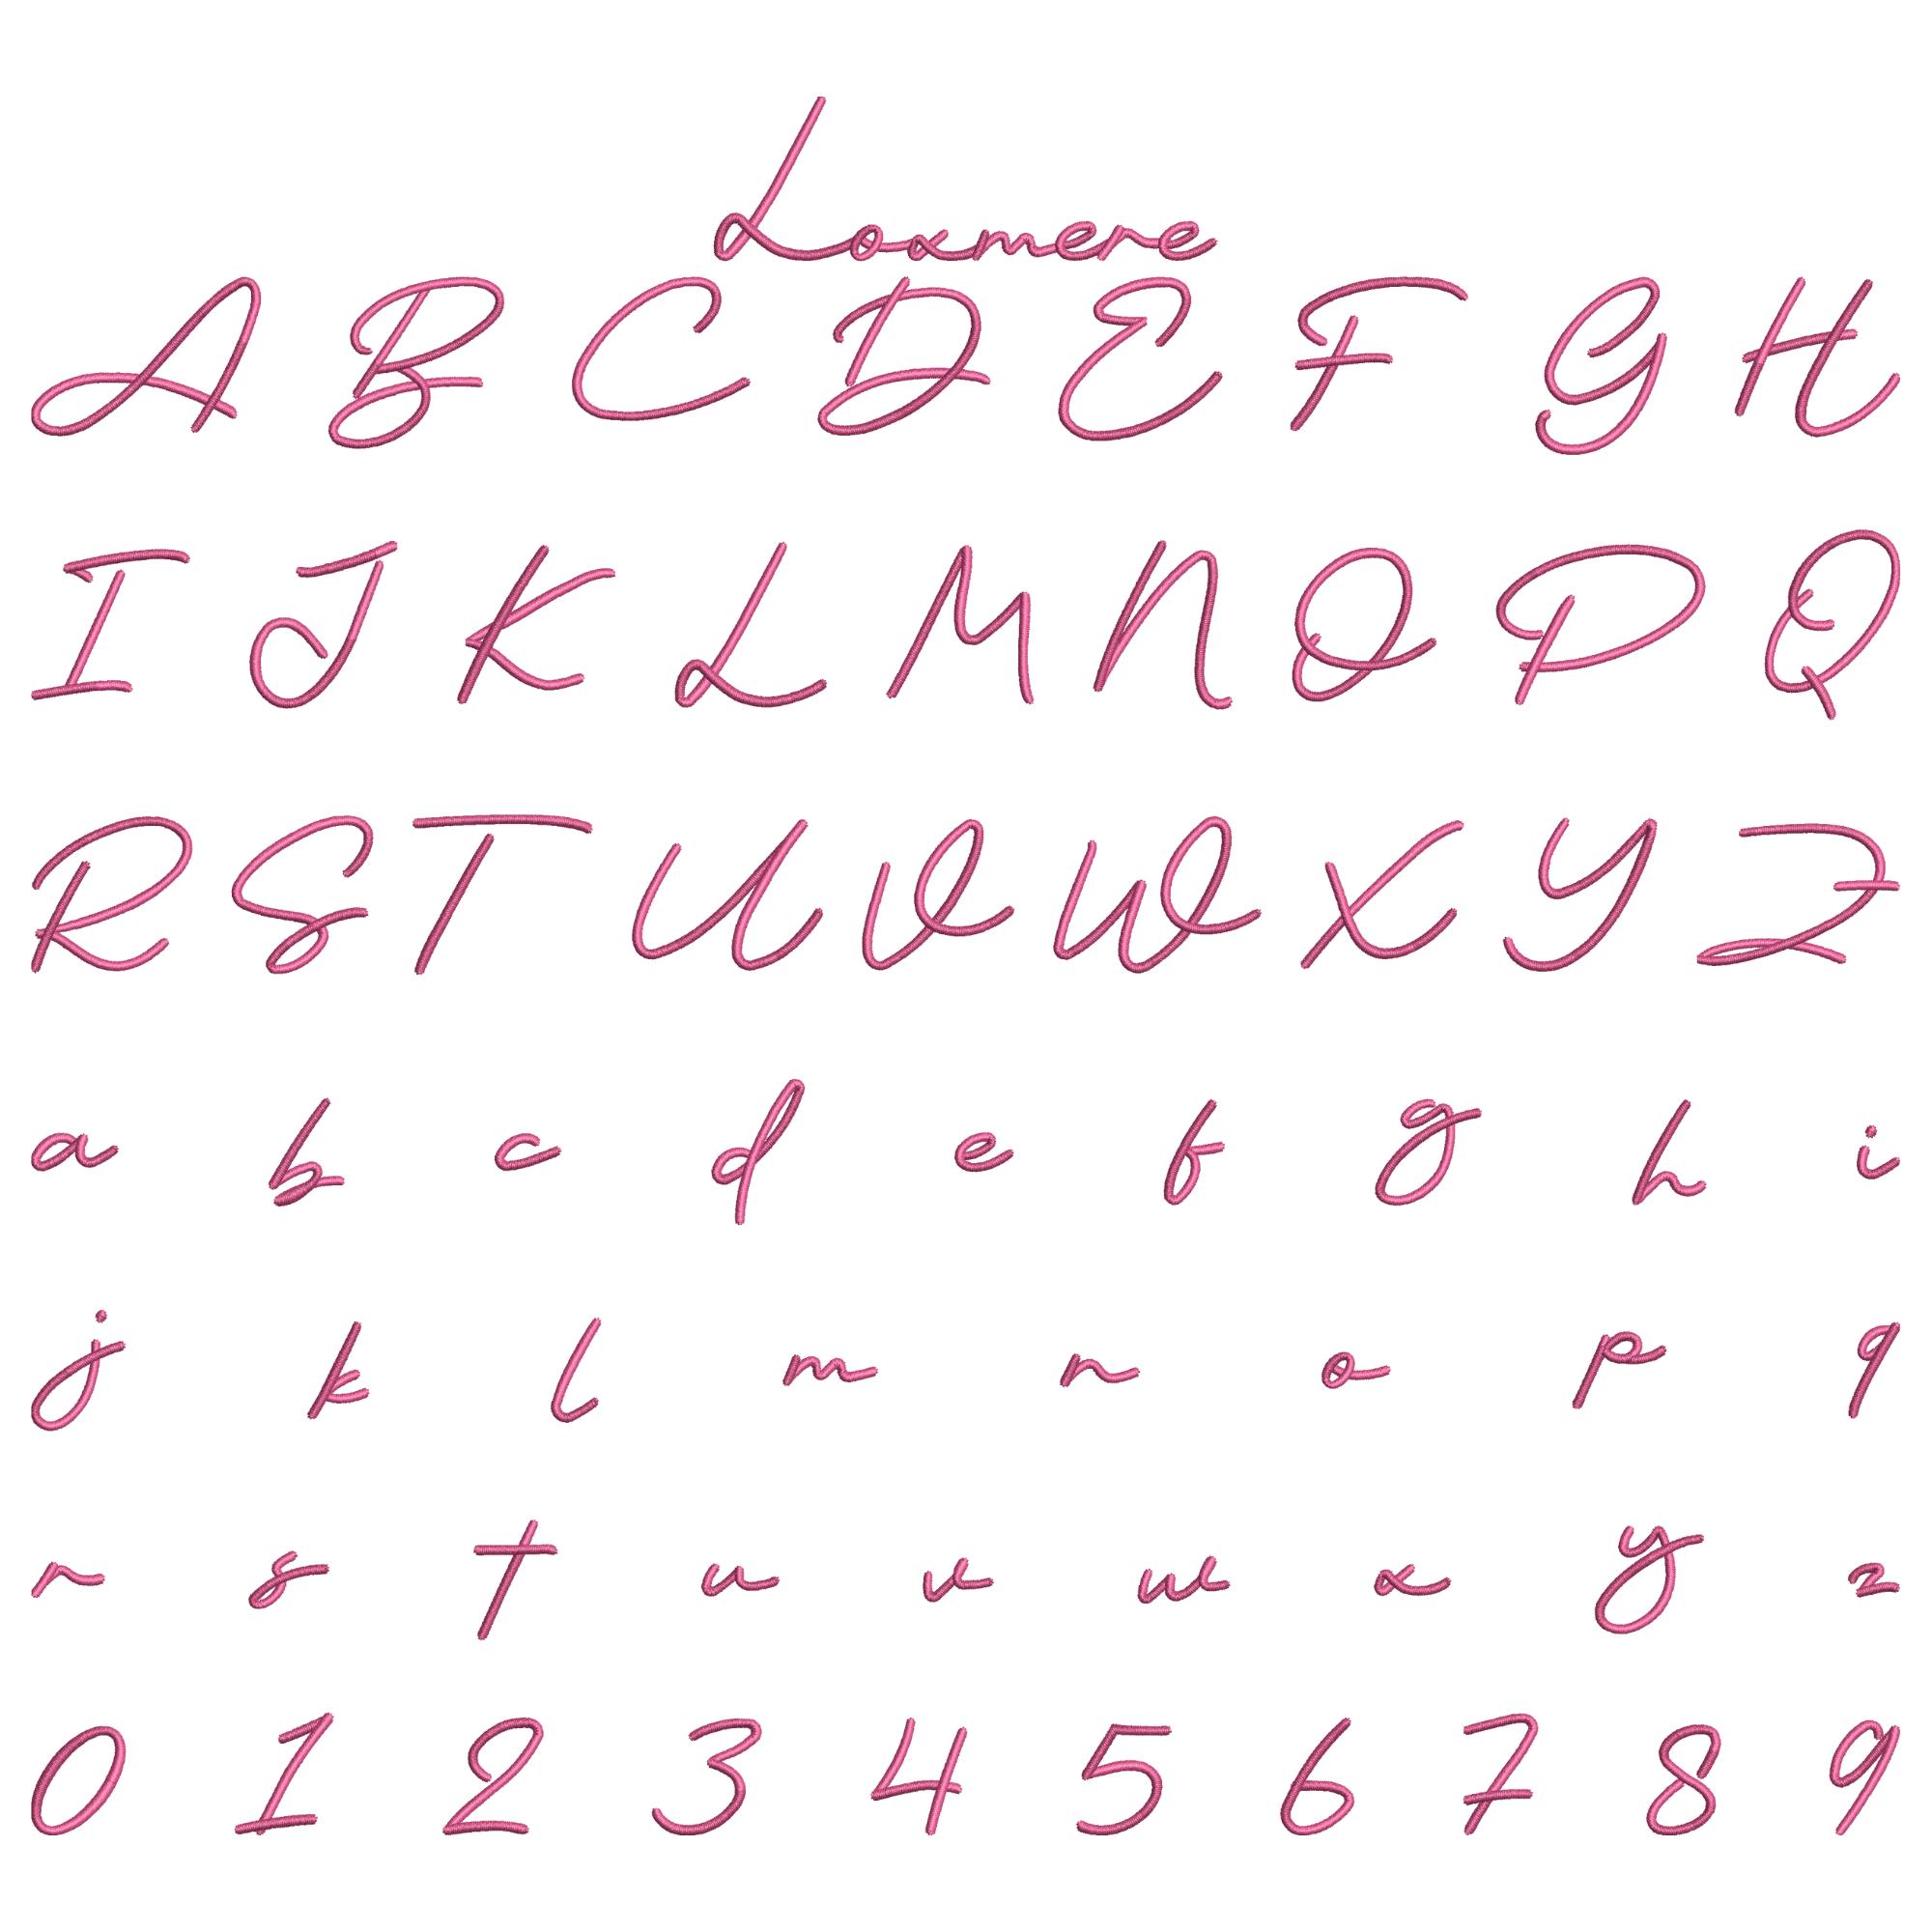 Loxmere
A B C D E F G H
I J K L M N O P Q
R S T U V W X Y Z
a b c d e f g h i
j k l m n o p q
r s t u v w x y z
0 1 2 3 4 5 6 7 8 9